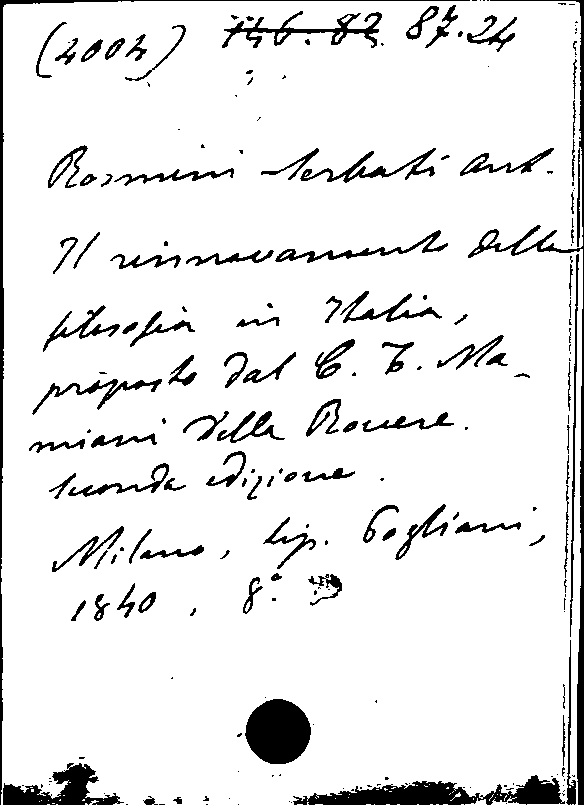 (2002) 146.82 87.24
Rosmini-Serbati Ant.
Il rinnovamento della
filosofia in Italia,
proposto dal C. T. Ma-
miani della Rovere.
Seconda edizione.
Milano, tip. Pogliani,
1840, 8°.